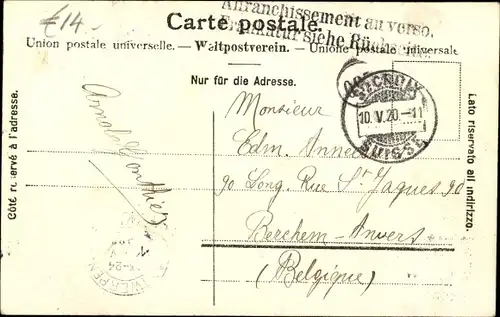 £14.-
Affranchissement au verso.
Frankatur siehe Rückseite.
Carte postale.
Union postale universelle. — Weltpostverein. — Unione postale universale
Nur für die Adresse.
Côté réservé à l'adresse.
Lato riservato all'indirizzo.
10.V.20.-11
SUISSE
Monsieur
Edm.
90 Long. Rue St Jaques 90
Berchem-Anvers
(Belgique)
Arnold